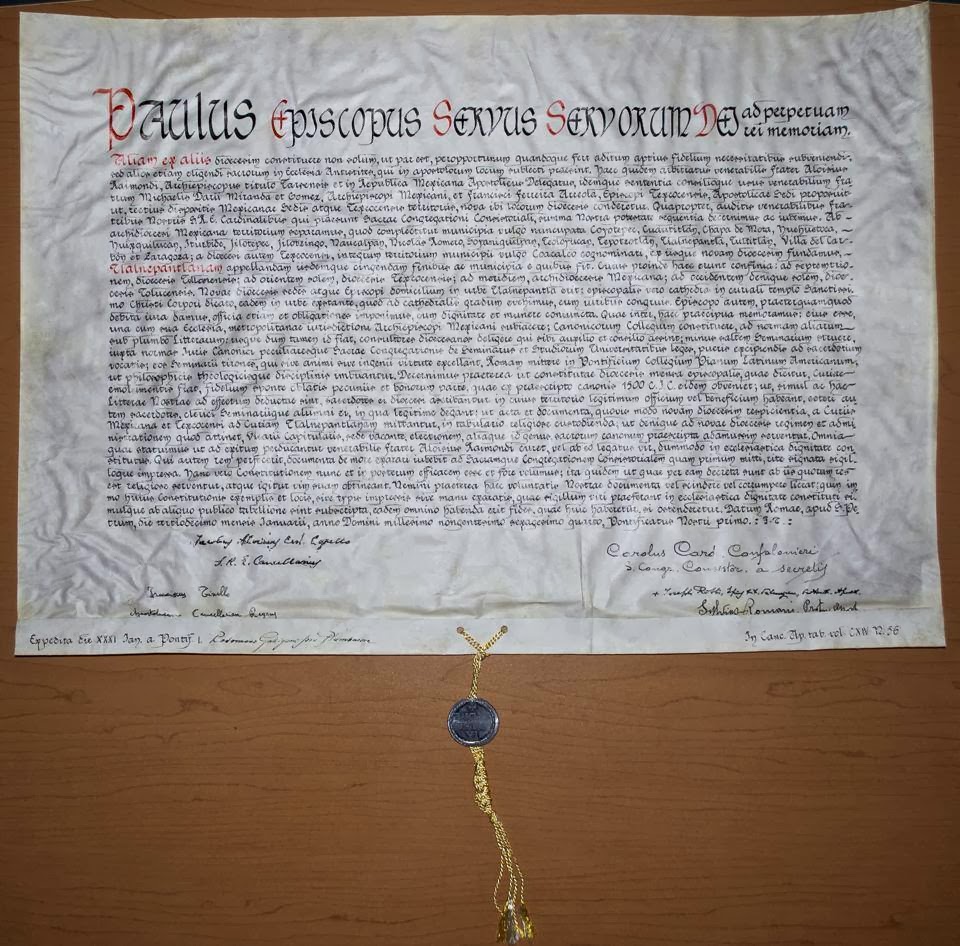 Paulus Episcopus Servus Servorum Dei ad perpetuam
rei memoriam.
Aliam ex aliis dioecesim constituere non solum, ut par est, peropportunum quandoque fert aditum aptius fidelium necessitatibus subveniendi,
sed alios etiam eligendi sacrorum in Ecclesia Antistites, qui in apostolorum locum suffecti praesint. Haec quidem arbitratus venerabilis frater Aloisius
Raimondi, Archiepiscopus titulo Tarsensis et in Republica Mexicana Apostolicus Delegatus, idemque sententia consilioque usus venerabilium fra
trum Michaelis Darii Miranda et Gomez, Archiepiscopi Mexicani, et Francisci Ferreira Arreola, Episcopi Texcocensis, Apostolicae Sedi proposuit
ut, rectius dispositis Mexicanae Sedis atque Texcocensis territoriis, nova ibi locorum dioecesis conderetur. Quapropter, auditis venerabilibus fra-
tribus Nostris S.R.E. Cardinalibus qui praesunt Sacrae Congregationi Consistoriali, summa Nostra potestate sequentia decernimus ac iubemus. Ab -
archidioecesi Mexicana territorium separamus, quod complectitur municipia vulgo nuncupata Coyotepec, Cuautitlán, Chapa de Mota, Huehuetoca,
Huixquilucan, Iturbide, Jilotepec, Jilotzingo, Naucalpan, Nicolás Romero, Soyaniquilpan, Teoloyucan, Tepotzotlán, Tlalnepantla, Tultitlán, Villa del Car-
bón et Zaragoza; a dioecesi autem Texcocensi, integrum territorium municipii vulgo Coacalco cognominati, ex iisque novam dioecesim fundamus,
Tlalnepantlanam appellandam iisdemque cingendam finibus ac municipia e quibus fit. Cuius proinde haec erunt confinia: ad septemtrio-
nem, dioecesis Tullensis; ad orientem solem, dioecesis Texcocensis; ad meridiem, archidioecesis Mexicana; ad occidentem denique solem, dioe-
cesis Tolucensis. Novae dioecesis sedes atque Episcopi domicilium in urbe Tlalnepantla erit; episcopalis vero cathedra in curiali templo Sanctissi
mo Christi Corpori dicato, eadem in urbe exstante, quod ad cathedralis gradum evehimus, cum iuribus congruis. Episcopo autem, praeterquamquod
debita iura damus, officia etiam et obligationes imponimus, cum dignitate et munere coniuncta. Quae inter, haec praecipua memoramus: eius esse,
una cum sua Ecclesia, metropolitanae iurisdictioni Archiepiscopi Mexicani subiacere; Canonicorum Collegium constituere, ad normam aliarum
sub plumbo Litterarum; usque dum tamen id fiat, consultores dioecesanos deligere qui sibi auxilio et consilio assint; minus saltem Seminarium struere,
iuxta normas Iuris Canonici peculiaresque Sacrae Congregationis de Seminariis et Studiorum Universitatibus leges, pueris excipiendis ad sacerdotium
vocatis; eos Seminarii tirones, qui sive animi sive ingenii virtute excellant, Romam mittere in Pontificium Collegium Pianum Latinum Americanum,
ut philosophicis theologicisque disciplinis imbuantur. Decernimus praeterea ut constitutae dioecesis mensa episcopalis, quae dicitur, Curiae
emolumentis fiat, fidelium sponte oblatis pecuniis et bonorum parte, quae ex praescripto canonis 1500 C.I.C. eidem obveniet; ut, simul ac hae
Litterae Nostrae ad effectum deductae sint, sacerdotes ei dioecesi ascribantur in cuius territorio legitimum officium vel beneficium habeant, ceteri au
tem sacerdotes, clerici Seminariique alumni ei, in qua legitime degant; ut acta et documenta, quovis modo novam dioecesim respicientia, a Curiis
Mexicana et Texcocensi ad Curiam Tlalnepantlanam mittantur, in tabulario religiose custodienda; ut denique ad novae dioecesis regimen et admi
nistrationem quod attinet, Vicarii Capitularis, sede vacante, electionem, aliaque id genus, sacrorum canonum praescripta adamussim serventur. Omnia
quae statuimus ut ad exitum perducantur venerabilis frater Aloisius Raimondi curet, vel ab eo legatus vir, dummodo in ecclesiastica dignitate con
stitutus. Qui autem rem perfecerit, documenta de more exarari iubebit ad Sacramque Congregationem Consistorialem quam primum mitti, rite signata sigil
loque impressa. Hanc vero Constitutionem nunc et in posterum efficacem esse et fore volumus; ita quidem ut quae per eam decreta sunt ab iis quorum res
est religiose serventur, atque igitur vim suam obtineant. Nemini praeterea haec voluntatis Nostrae documenta vel scindere vel corrumpere liceat; quin im
mo huius Constitutionis exemplis et locis, sive typis impressis sive manu exaratis, quae sigillum viri praeferant in ecclesiastica dignitate constituti si
mulque ab aliquo publico tabellione sint subscripta, eadem omnino habenda erit fides, quae huic haberetur, si ostenderetur. Datum Romae, apud S. Pe
trum, die tertiodecimo mensis Ianuarii, anno Domini millesimo nongentesimo sexagesimo quarto, Pontificatus Nostri primo. :
Iacobus Aloisius Card. Copello
S. R. E. Cancellarius
Carolus Card. Confalonieri
S. Congr. Consistor. a secretis
Franciscus Tinello
Apostolicam Cancellariam Regens
Silvius Romani, Proton. Apost.
Expedita die XXXI Ian. a. Pontif. I.
In Canc. Ap. tab. vol. CXIV N. 56